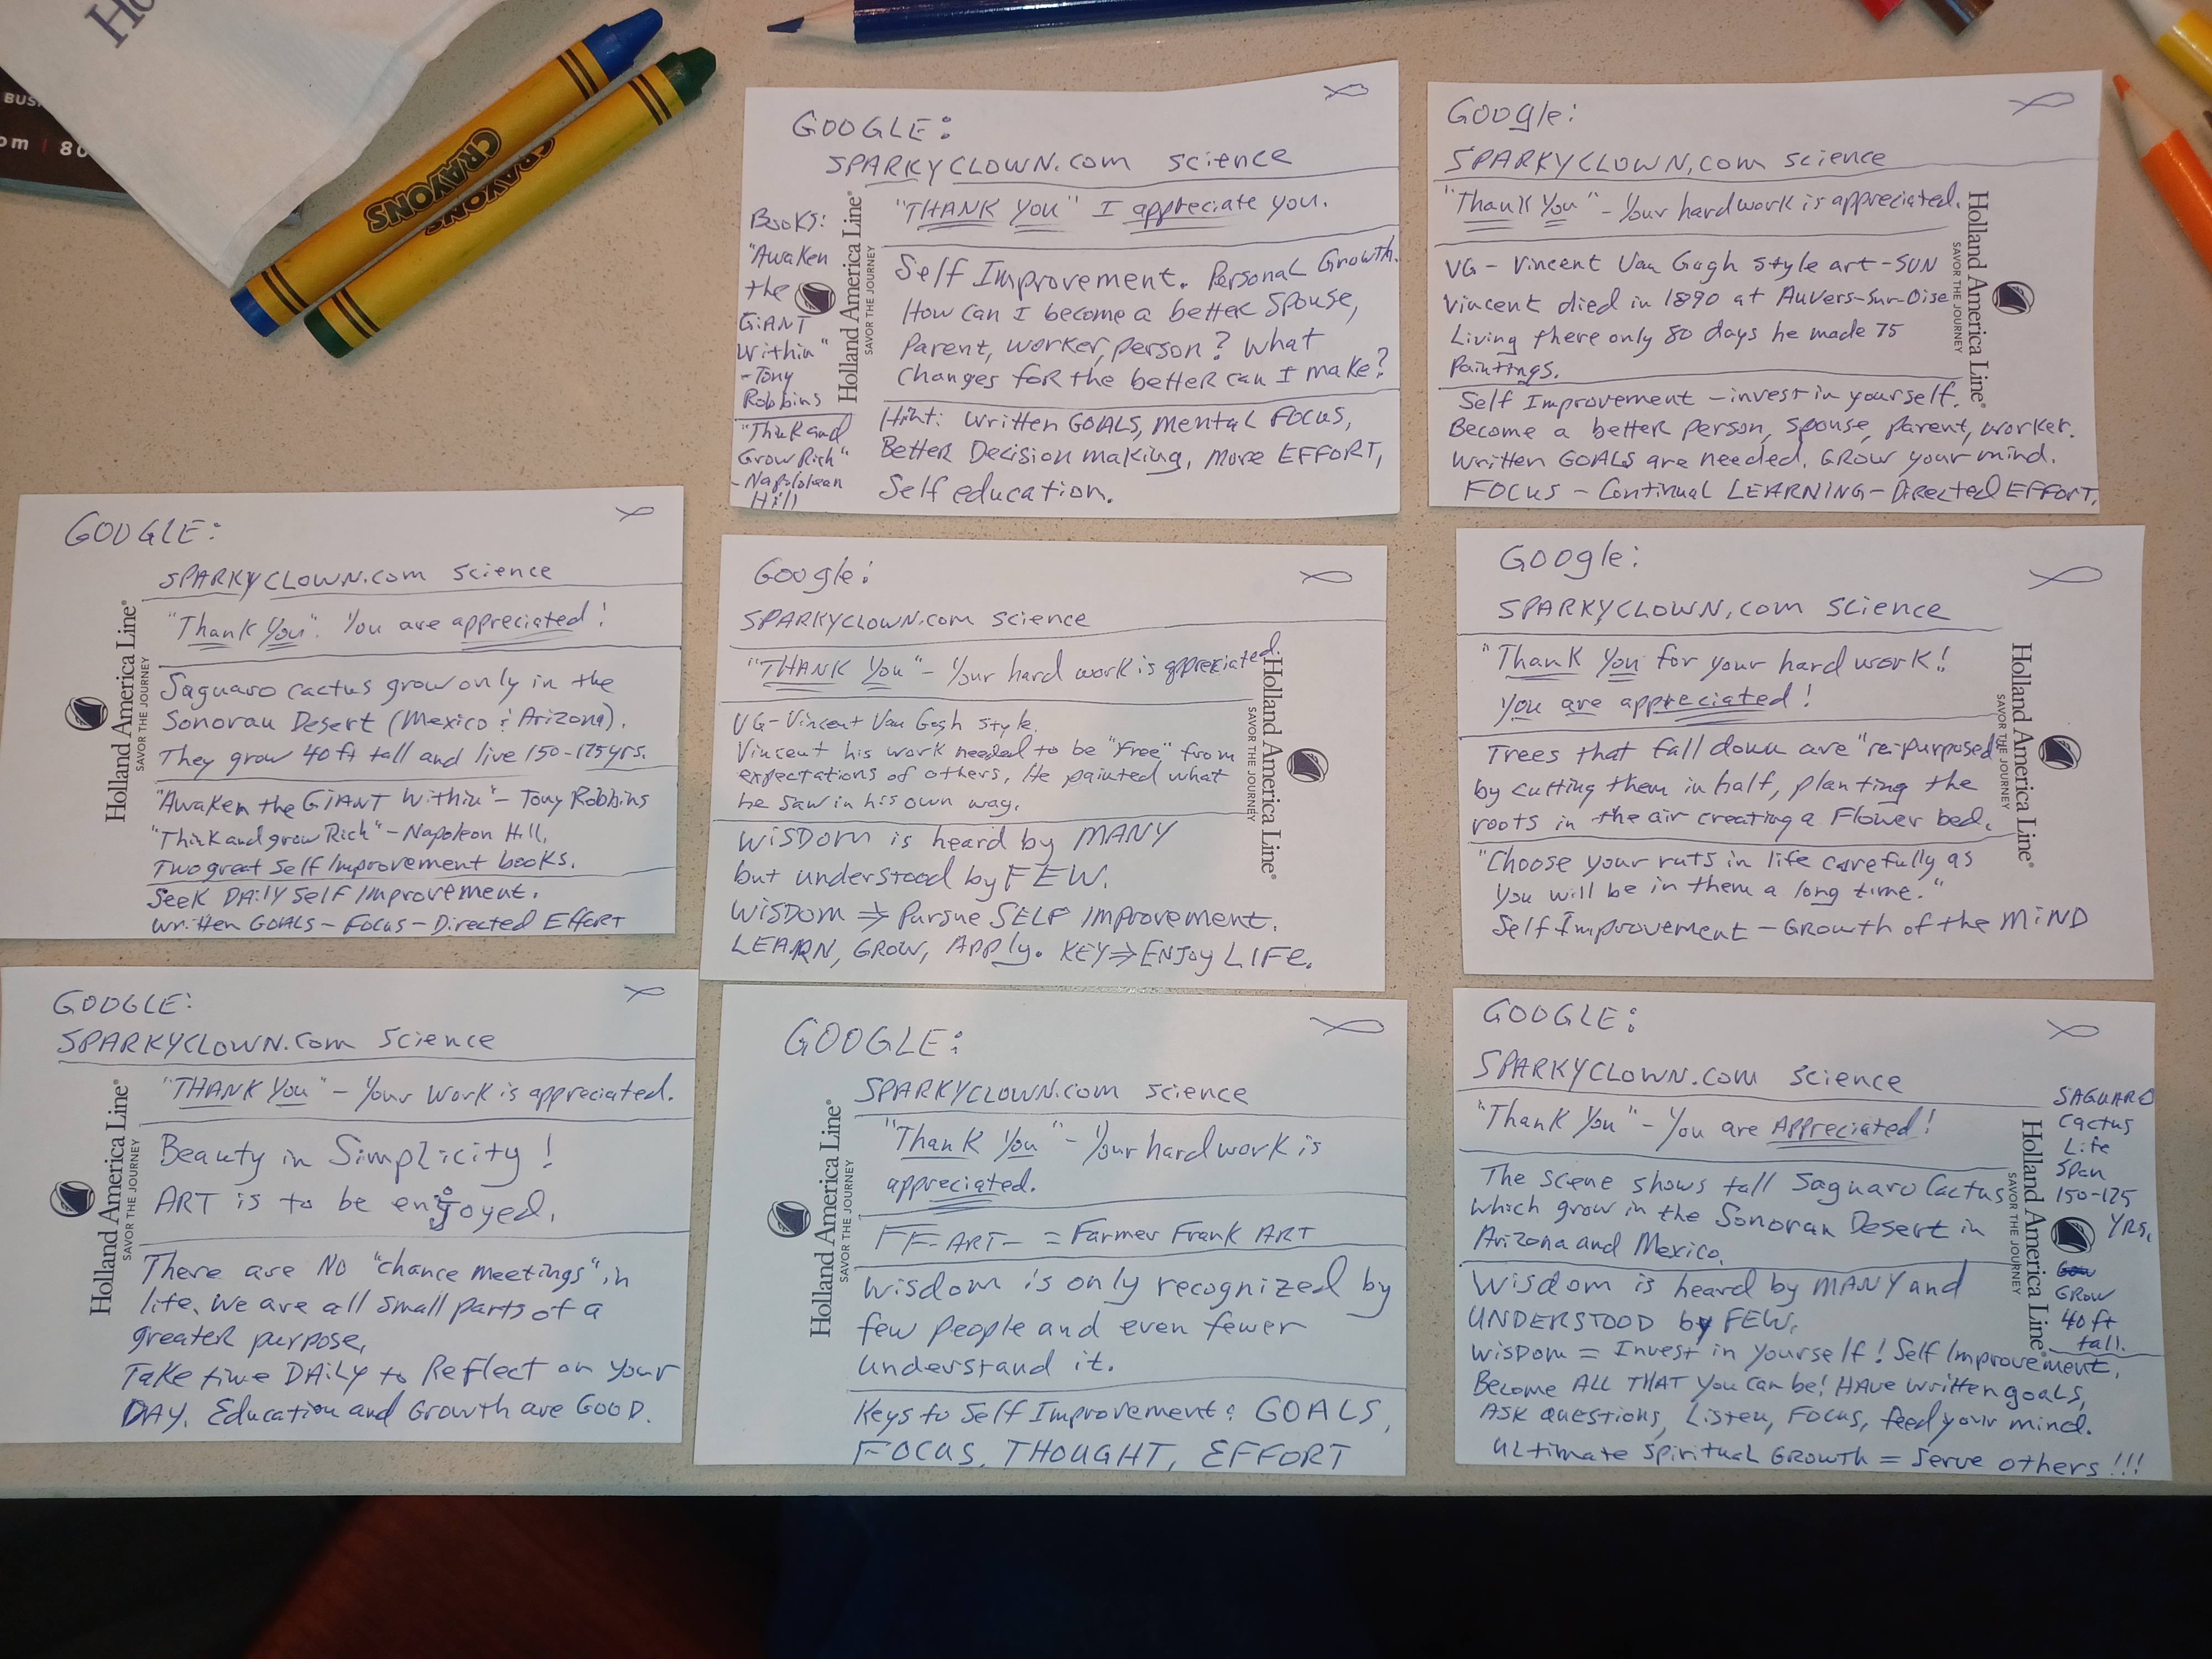 Ho
BUSI
om | 80
CRAYONS
CRAYONS
GOOGLE:
SPARKYCLOWN.com science
"THANK YOU" I appreciate you.
Self Improvement. Personal Growth.
How can I become a better Spouse,
Parent, worker, person? What
changes for the better can I make?
Hint: written GOALS, mental FOCUS,
Better Decision making, more EFFORT,
Self education.
Books:
"Awaken
the
GiANT
Within"
-Tony
Robbins
"Think and
Grow Rich"
-Napololean
Hill
Holland America Line®
SAVOR THE JOURNEY
Google:
SPARKYCLOWN.com science
"Thank You" - Your hard work is appreciated.
VG - Vincent Van Gogh style art - SUN
Vincent died in 1890 at Auvers-Sur-Oise
Living there only 80 days he made 75
Paintings.
Self Improvement - invest in yourself.
Become a better person, spouse, parent, worker.
Written GOALS are needed. GROW your mind.
FOCUS - Continual LEARNING - Directed EFFORT.
Holland America Line®
SAVOR THE JOURNEY
GOOGLE:
SPARKYCLOWN.com science
"Thank You". You are appreciated!
Saguaro cactus grow only in the
Sonoran Desert (Mexico & Arizona).
They grow 40ft tall and live 150-175yrs.
"Awaken the GIANT Within" - Tony Robbins
"Think and grow Rich" - Napoleon Hill.
Two great Self Improvement books.
Seek DAiLY Self Improvement.
Written GOALS - Focus - Directed Effort
Holland America Line®
SAVOR THE JOURNEY
Google:
SPARKYCLOWN.com science
"THANK You" - Your hard work is appreciated.
VG - Vincent Van Gogh style.
Vincent his work needed to be "Free" from
expectations of others. He painted what
he saw in his own way.
WiSDOM is heard by MANY
but understood by FEW.
WiSDOM ⇒ Pursue SELF Improvement.
LEARN, GROW, APPly. KEY ⇒ ENJOY LIFE.
Holland America Line®
SAVOR THE JOURNEY
Google:
SPARKYCLOWN.com science
"Thank You for your hard work!
You are appreciated!
Trees that fall down are "re-purposed"
by cutting them in half, planting the
roots in the air creating a Flower bed.
"Choose your ruts in life carefully as
You will be in them a long time."
Self Improvement - Growth of the MiND
Holland America Line®
SAVOR THE JOURNEY
GOOGLE:
SPARKYCLOWN.com Science
"THANK You" - Your work is appreciated.
Beauty in Simplicity!
ART is to be enjoyed.
There are NO "chance meetings" in
life. We are all small parts of a
greater purpose.
Take time DAiLY to Reflect on your
DAY. Education and Growth are GOOD.
Holland America Line®
SAVOR THE JOURNEY
GOOGLE:
SPARKYCLOWN.com science
"Thank You" - Your hard work is
appreciated.
FF-ART- = Farmer Frank ART
Wisdom is only recognized by
few people and even fewer
understand it.
Keys to Self Improvement: GOALS,
FOCUS, THOUGHT, EFFORT
Holland America Line®
SAVOR THE JOURNEY
GOOGLE:
SPARKYCLOWN.com science
"Thank You" - You are Appreciated!
The scene shows tall Saguaro Cactus
which grow in the Sonoran Desert in
Arizona and Mexico.
Wisdom is heard by MANY and
UNDERSTOOD by FEW.
WISDOM = Invest in yourself! Self Improvement.
Become ALL THAT you can be! Have written goals,
ASK questions, Listen, Focus, feed your mind.
ULtimate Spiritual Growth = Serve others!!!
SAGUARO
Cactus
Life
Span
150-175
YRS.
GROW
40ft
tall.
Holland America Line®
SAVOR THE JOURNEY